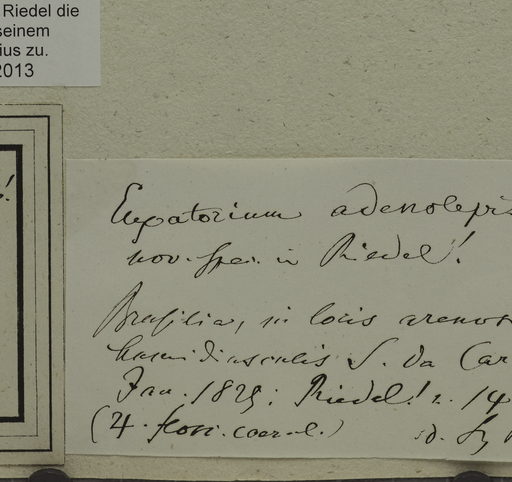 Riedel die
seinem
ius zu.
2013
Eupatorium adenolepis
nov. spec. in Riedel!
Brasilia, in locis arenos
humidiusculis S. da Car
Jan. 1825. Riedel! n. 14
(4. flor. coerul.)